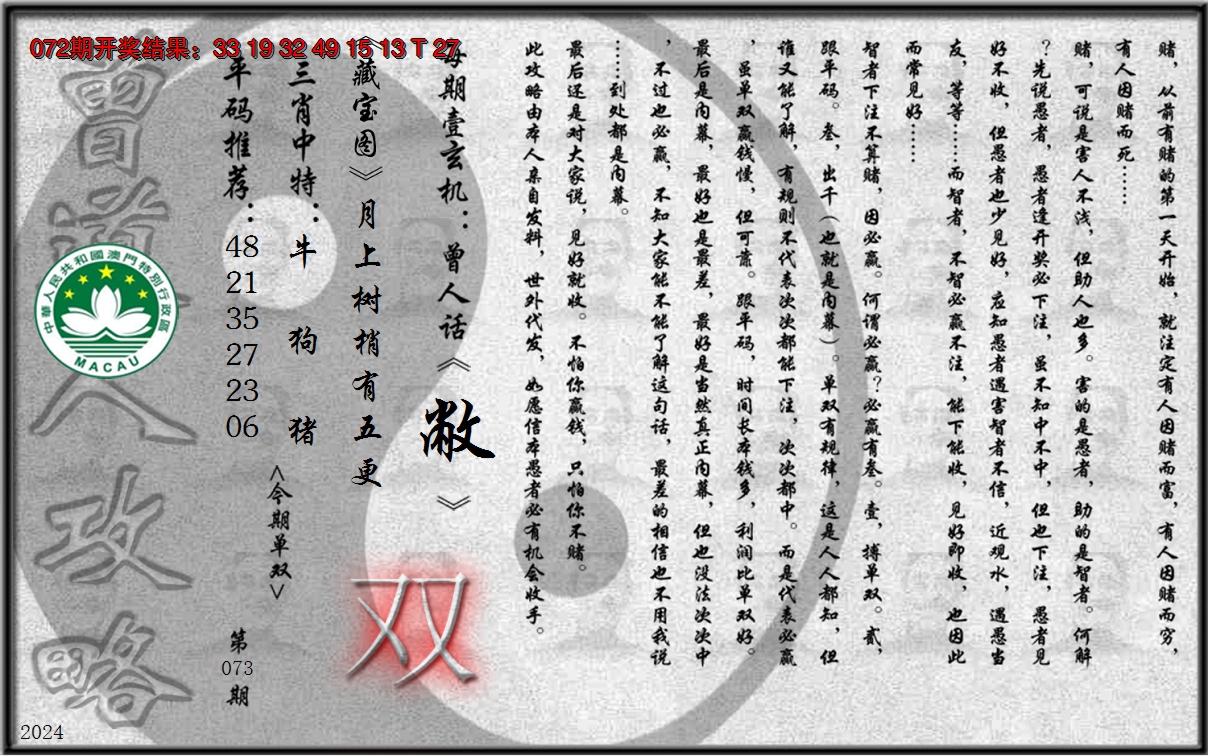 072期开奖结果：33 19 32 49 15 13 T 27
赌，从前有赌的第一天开始，就注定有人因赌而富，有人因赌而穷，
有人因赌而死……
赌，可说是害人不浅，但助人也多。害的是愚者，助的是智者。何解
？先说愚者，愚者逢开奖必下注，虽不知中不中，但也下注，愚者见
好不收，但愚者也少见好，应知愚者遇害智者不信，近观水，遇愚当
友，等等……而智者，不智必赢不注，能下能收，见好即收，也因此
而常见好……
智者下注不算赌，因必赢。何谓必赢？必赢有叁。壹，搏单双。贰，
跟平码。叁，出千（也就是内幕）。单双有规律，这是人人都知，但
谁又能了解，有规则不代表次次都能下注，次次都中。而是代表必赢
，虽单双赢钱慢，但可靠。跟平码，时间长本钱多，利润比单双好。
最后是内幕，最好也是最差，最好是当然真正内幕，但也没法次次中
，不过也必赢，不知大家能不能了解这句话，最差的相信也不用我说
……到处都是内幕。
最后还是对大家说，见好就收。不怕你赢钱，只怕你不赌。
此攻略由本人亲自发料，世外代发，如愿信本愚者必有机会收手。
每期壹玄机：曾人话《敝》
《藏宝图》月上树梢有五更
双
三肖中特：牛 狗 猪
<今期单双>
平码推荐：48 21 35 27 23 06
第073期
曾道人攻略
中華人民共和國澳門特別行政區
MACAU
2024